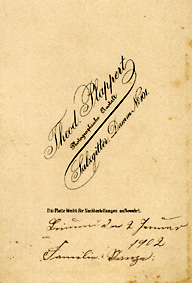 Theod. Plappert
Photographische Anstalt
Salzgitter, Damm No 101.
Die Platte bleibt für Nachbestellungen aufbewahrt.
den 2 Januar
1902
Familie